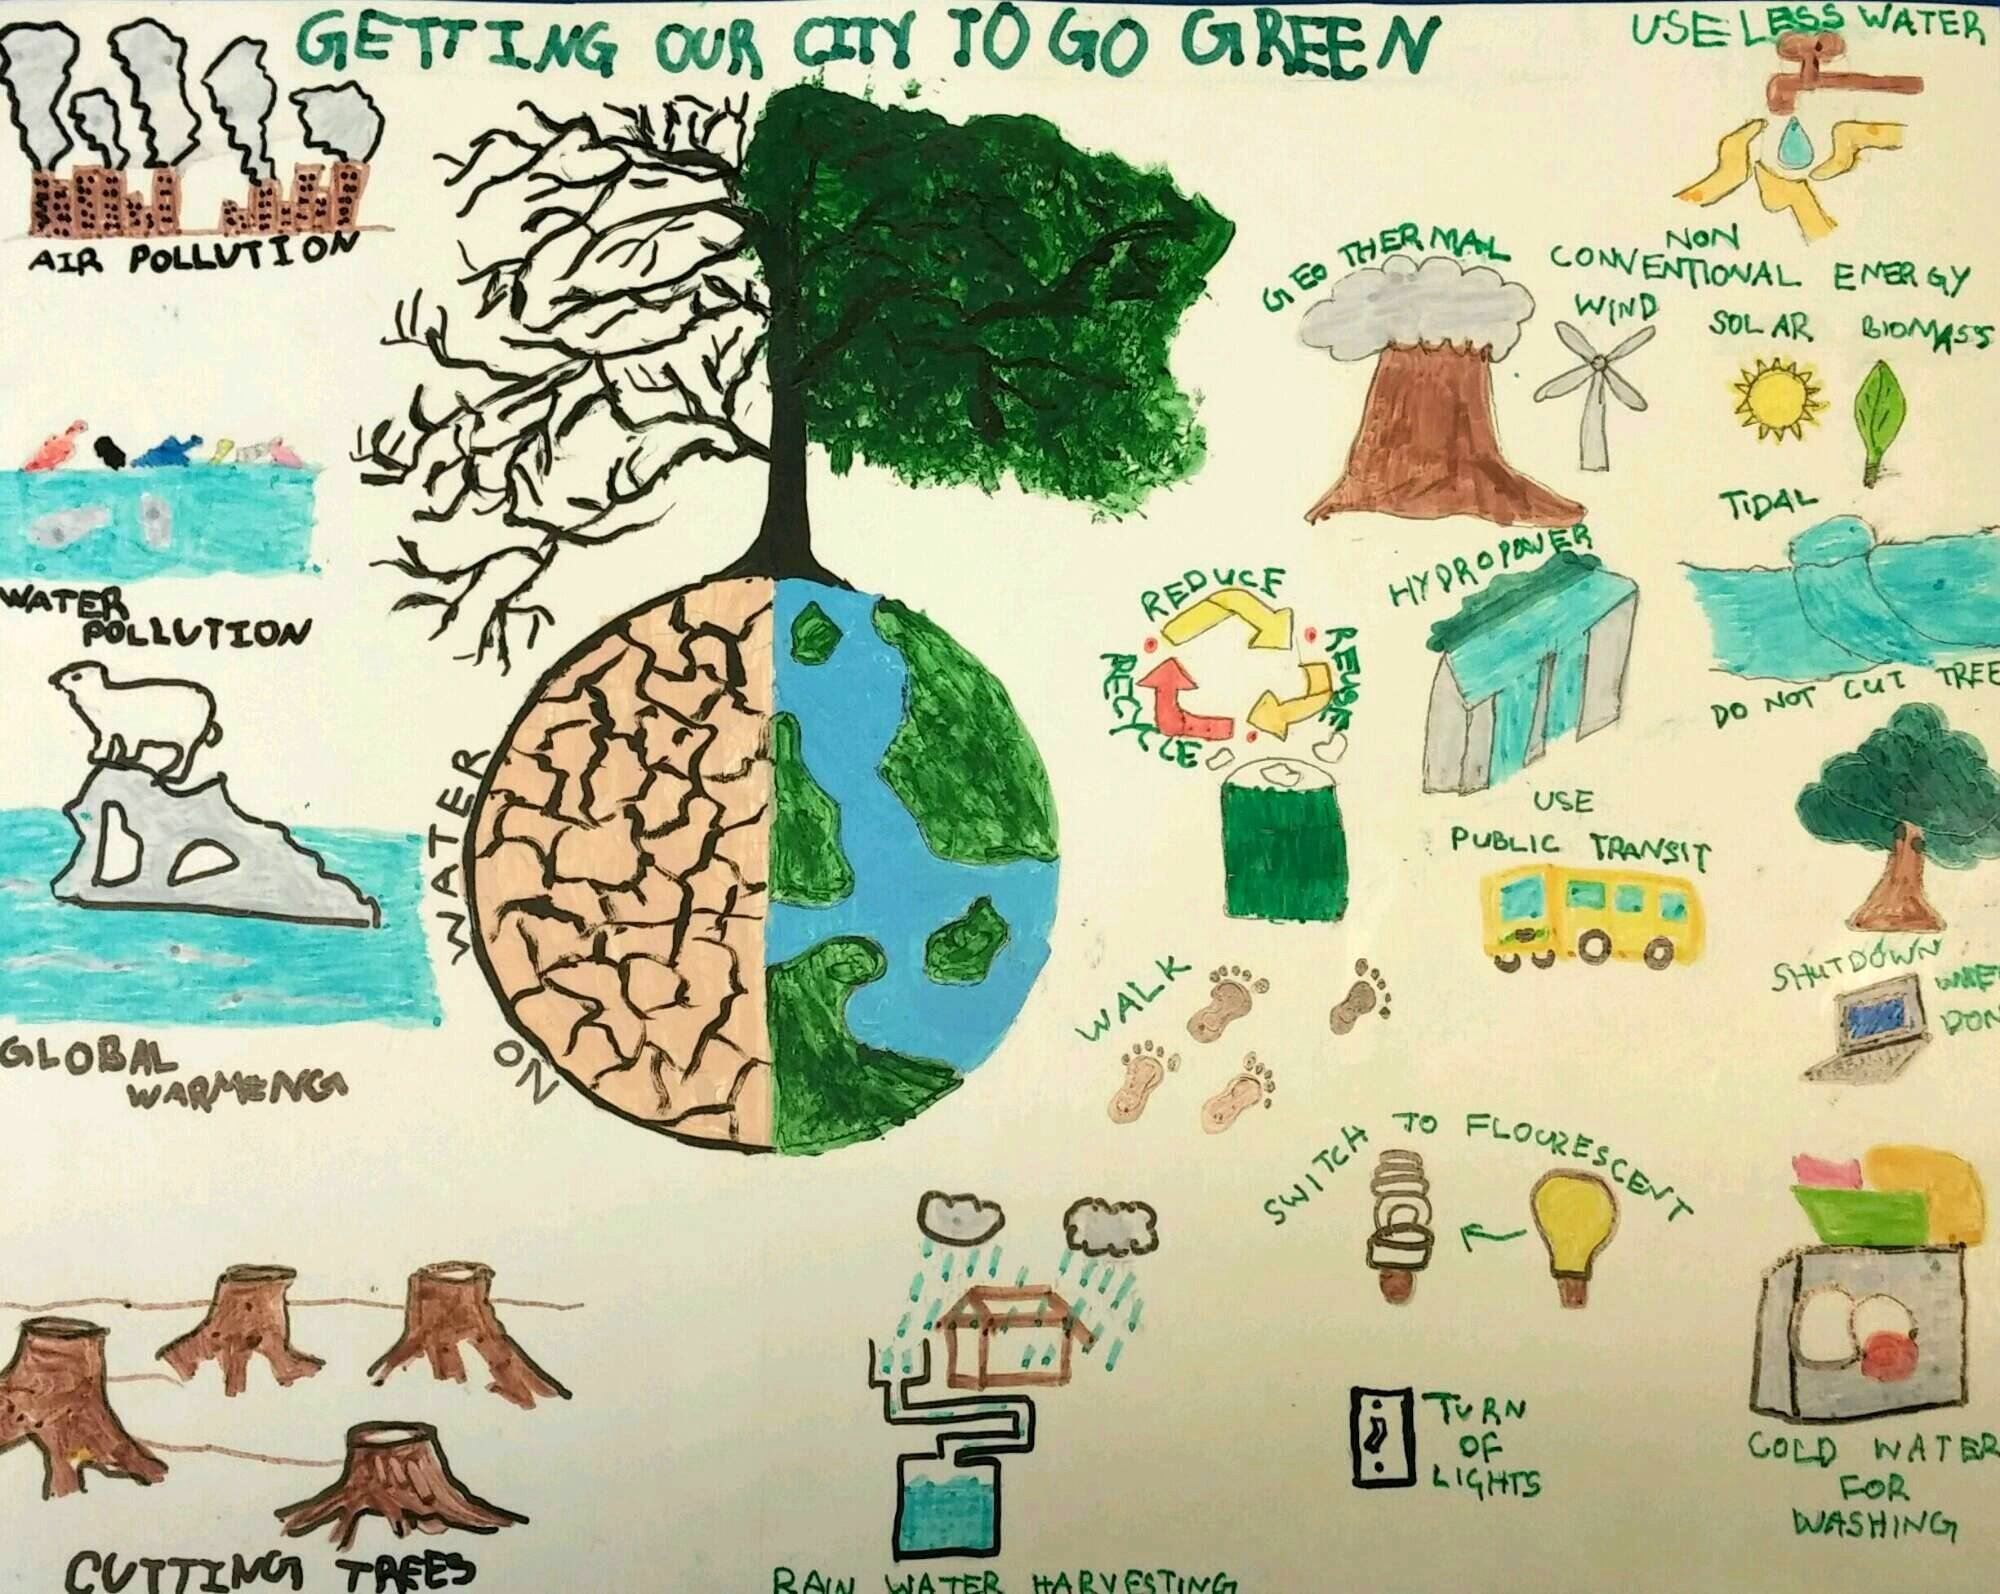 GETTING OUR CITY TO GO GREEN
USE LESS WATER
AIR POLLUTION
GEO THERMAL
NON
CONVENTIONAL ENERGY
WIND
SOLAR
BIOMASS
TIDAL
HYDROPOWER
WATER
POLLUTION
REDUCE
REUSE
RECYCLE
DO NOT CUT TREE
USE
PUBLIC TRANSIT
NO WATER
WALK
SHUTDOWN
WHEN
DON
GLOBAL
WARMENG
SWITCH TO FLOURESCENT
TURN
OF
LIGHTS
COLD WATER
FOR
WASHING
CUTTING TREES
RAIN WATER HARVESTING